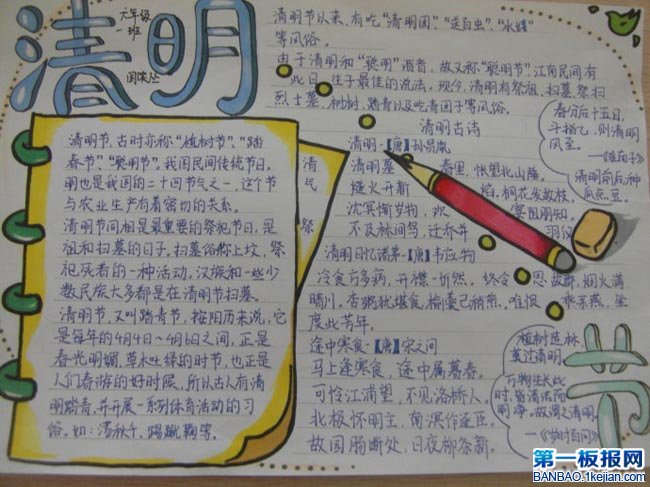 清明
六年级
一班
清明节以来,有吃“清明团”、“送白虫”、“水蝶”
等风俗。
由于清明和“聪明”谐音,故又称“聪明节”,江南民间有
此日生子最佳的说法,现今,清明有祭祖、扫墓、祭扫
烈士墓、树树、踏青以及吃青团子等风俗。
清明古诗
清明·【唐】孙昌胤
清明暮春里,怅望北山陲。
燧火开新焰,桐花发故枝。
沈冥惭岁物,欢宴阻朋知。
不及林间鸟,迁乔并羽仪
清明日忆诸弟-【唐】韦应物
冷食方多病,开襟一忻然。终令思故郡,烟火满
晴川。杏粥犹堪食,榆羹已稍煎。唯恨乖亲燕,坐
度此芳年。
途中寒食-【唐】宋之问
马上逢寒食,途中属暮春。
可怜江浦望,不见洛桥人。
北极怀明主,南溟作逐臣。
故园肠断处,日夜柳条新。
春分后十五日,
斗指乙,则清明
风至。
—《淮南子》
清明前后,种
瓜点豆。
清明节,古时亦称“植树节”、“踏
春节”、“聪明节”。我国民间传统节日。
明也是我国的二十四节气之一,这个节
与农业生产有着密切的关系。
清明节间相是最重要的祭祀节日,是
祖和扫墓的日子。扫墓俗称上坟,祭
祀死者的一种活动。汉族和一些少
数民族大多都是在清明节扫墓。
清明节,又叫踏青节,按阳历来说,它
是每年的4月4日~6日之间,正是
春光明媚、草木吐绿的时节,也正是
人们春游的好时候,所以古人有清
明踏青,并开展一系列体育活动的习
俗。如:荡秋千,踢蹴鞠等。
清
民
祭
植树造林,
莫过清明。
万物生长此
时,皆清洁而
明净。故谓之清明。
—《岁时百问》
节
第一板报网
BANBAO.1kejian.com